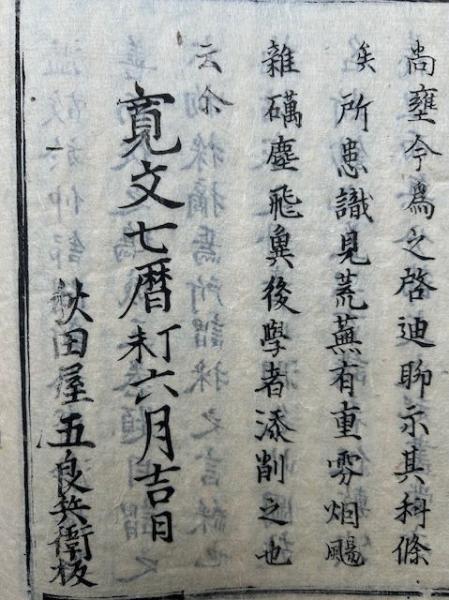 尚壅今為之啓迪聊示其科條
矣所患識見荒蕪有重雰烟颺
雜礪塵飛冀後學者添削之也
云尒
寛文七暦丁未六月吉日
秋田屋五良兵衛板